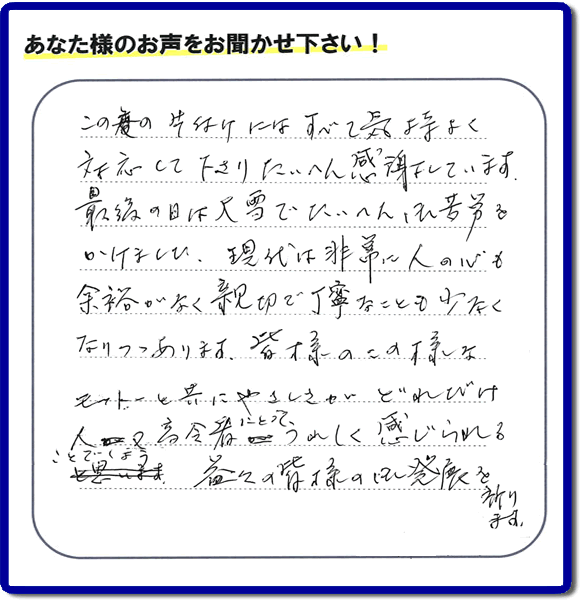 あなた様のお声をお聞かせ下さい！
この度の片付けにはすべて気持よく
対応して下さりたいへん感謝しています。
最後の日は大雪でたいへんご苦労を
かけました。現代は非常に人の心も
余裕がなく親切で丁寧なことも少なく
なりつつあります。皆様のこの様な
モットーと共にやさしさがどれだけ
人 高令者にとって、うれしく感じられる
ことでしょう
益々の皆様のご発展を
祈り
ます。